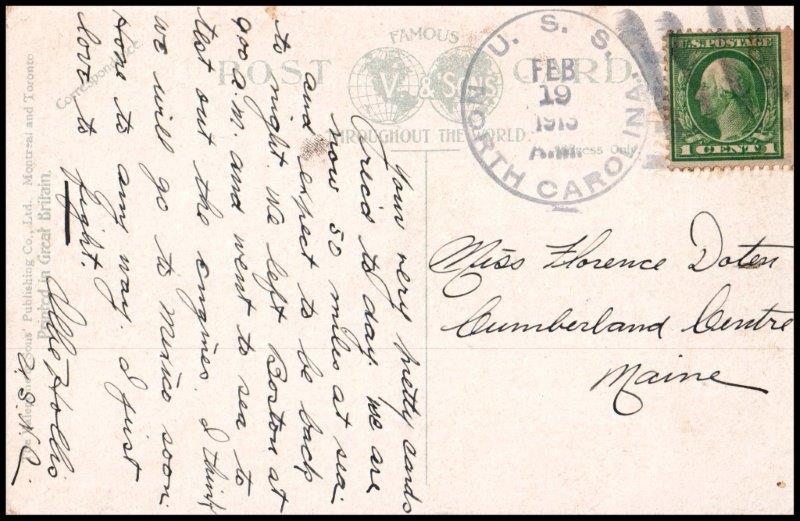 FAMOUS
POST CARD
V. & Sons
THROUGHOUT THE WORLD.
Correspondence
Address Only.
U. S. S.
NORTH CAROLINA
FEB
19
1913
A.M.
U.S. POSTAGE
1 CENT 1
Miss Florence Doten
Cumberland Centre
Maine
Your very pretty cards
rec'd to day. We are
now 50 miles at sea
and expect to be back
to night. We left Boston at
900 a.m. and went to sea to
test out the engines. I think
we will go to Mexico soon.
Hope to any way. I just
love to
fight.
U.S.N.
Valentine & Sons' Publishing Co., Ltd. Montreal and Toronto
Printed in Great Britain.